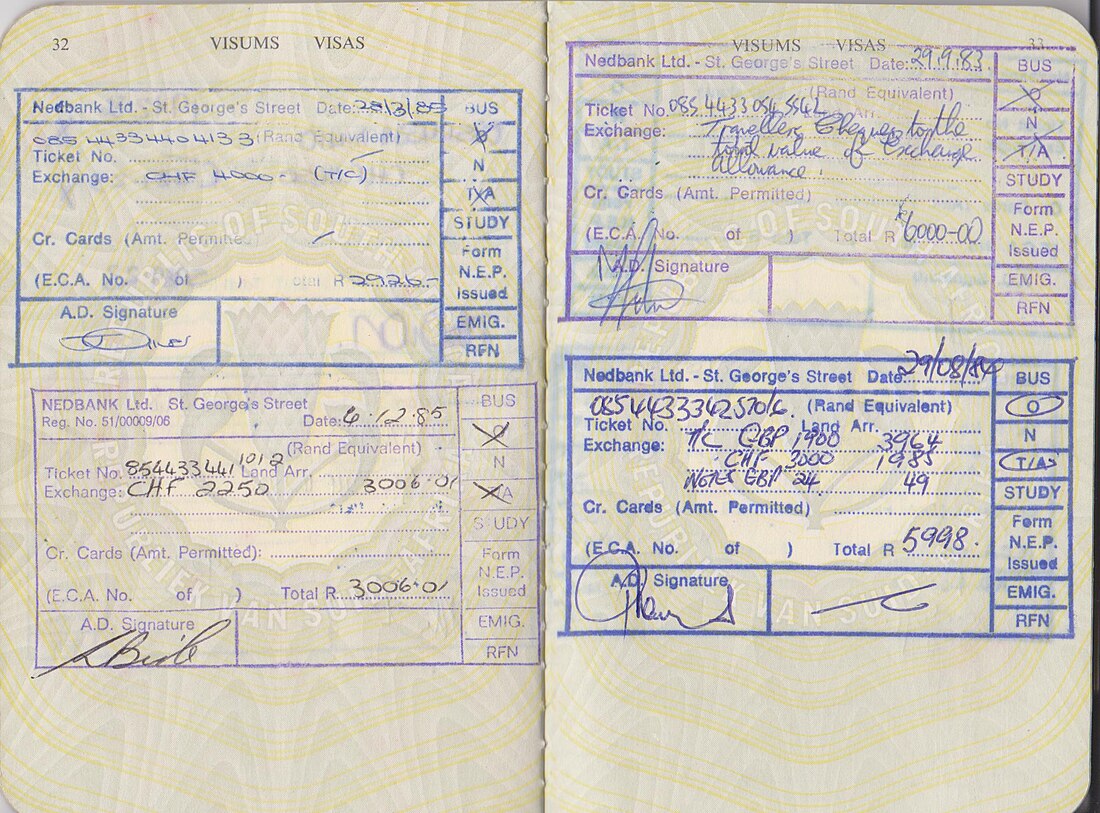 32 VISUMS VISAS
Nedbank Ltd. - St. George's Street Date: 28/3/85 BUS
085 44334404133 (Rand Equivalent) O
Ticket No. N
Exchange: CHF 4000 - (T/C) T/A
STUDY
Cr. Cards (Amt. Permitted)
Form
(E.C.A. No. of ) Total R 2926- N.E.P.
Issued
A.D. Signature EMIG.
RFN
NEDBANK Ltd. St. George's Street BUS
Reg. No. 51/00009/06 Date: 6.12.85
(Rand Equivalent) N
Ticket No. 854433441 1012 Land Arr.
Exchange: CHF 2250 3006.01 T/A
STUDY
Cr. Cards (Amt. Permitted): Form
N.E.P.
(E.C.A. No. of ) Total R. 3006.01 Issued
A.D. Signature EMIG.
RFN
VISUMS VISAS 33
Nedbank Ltd. - St. George's Street Date: 29.9.83 BUS
(Rand Equivalent) O
Ticket No. 085 4433 054 5542 N
Exchange: Travellers Cheques to the
total value of Exchange T/A
allowance. STUDY
Cr. Cards (Amt. Permitted)
Form
(E.C.A. No. of ) Total R 6000-00 N.E.P.
Issued
A.D. Signature EMIG.
RFN
Nedbank Ltd. - St. George's Street Date: 29/08/84 BUS
08544333425706 (Rand Equivalent) O
Ticket No. Land Arr. N
Exchange: T/C GBP 1900 3964
CHF 3000 1985 T/A
NOTES GBP 24 49 STUDY
Cr. Cards (Amt. Permitted)
Form
(E.C.A. No. of ) Total R 5998. N.E.P.
Issued
A.D. Signature EMIG.
RFN